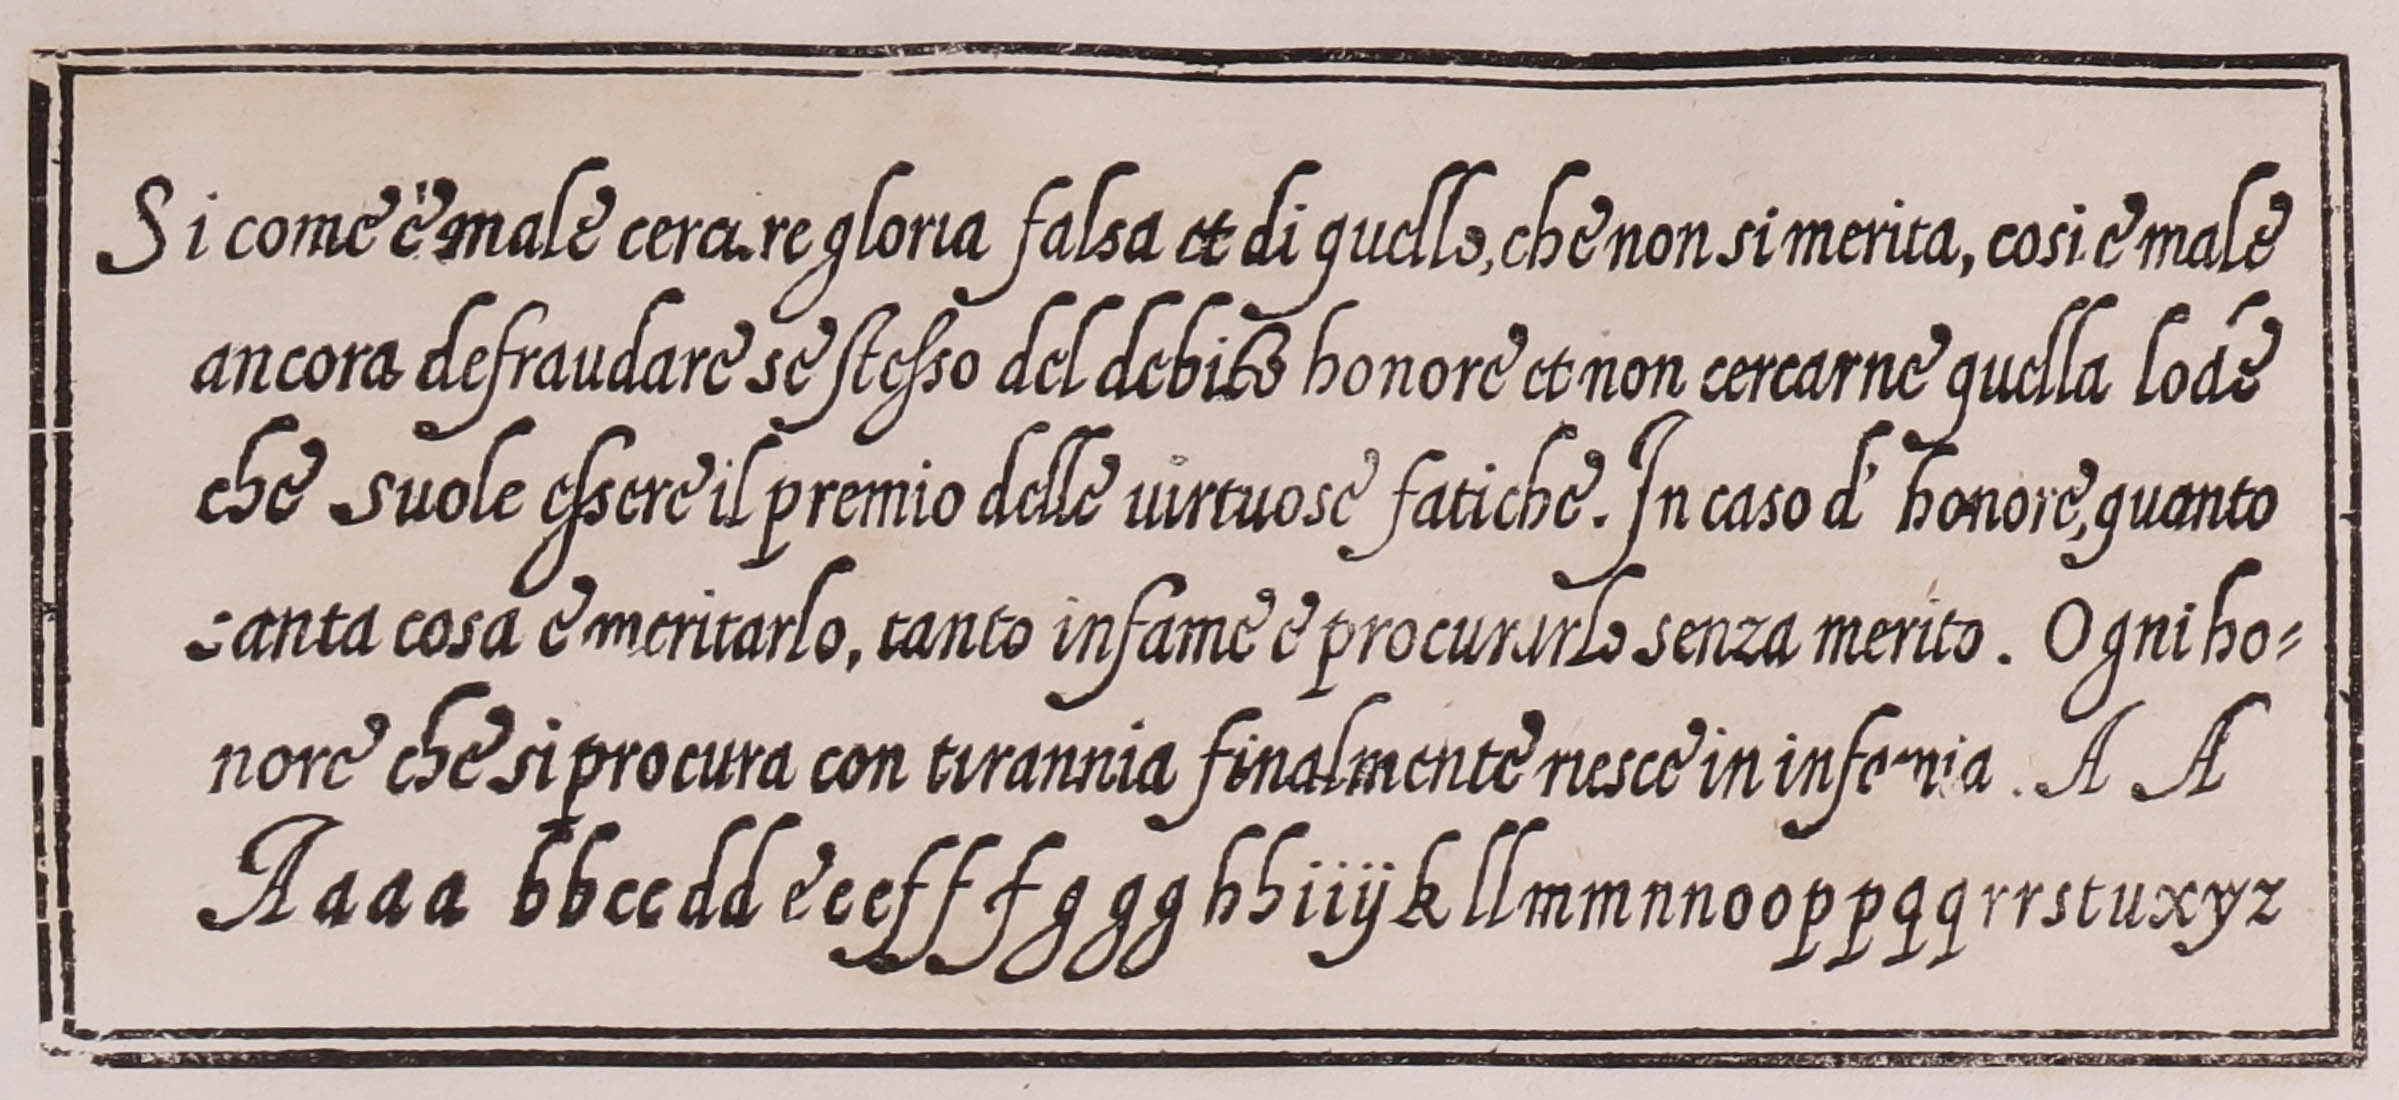 Si come è male cercare gloria falsa et di quello, che non si merita, cosi è male
ancora defraudare se stesso del debito honore et non cercarne quella lode
che suole essere il premio delle uirtuose fatiche. In caso d' honore, quanto
santa cosa e meritarlo, tanto infame e procurarlo senza merito. Ogni ho=
nore che si procura con tirannia finalmente riesce in infamia. A A
A a a a b b c c d d e e e f f f g g g h h i i ij k l l m m n n o o p p q q r r s t u x y z